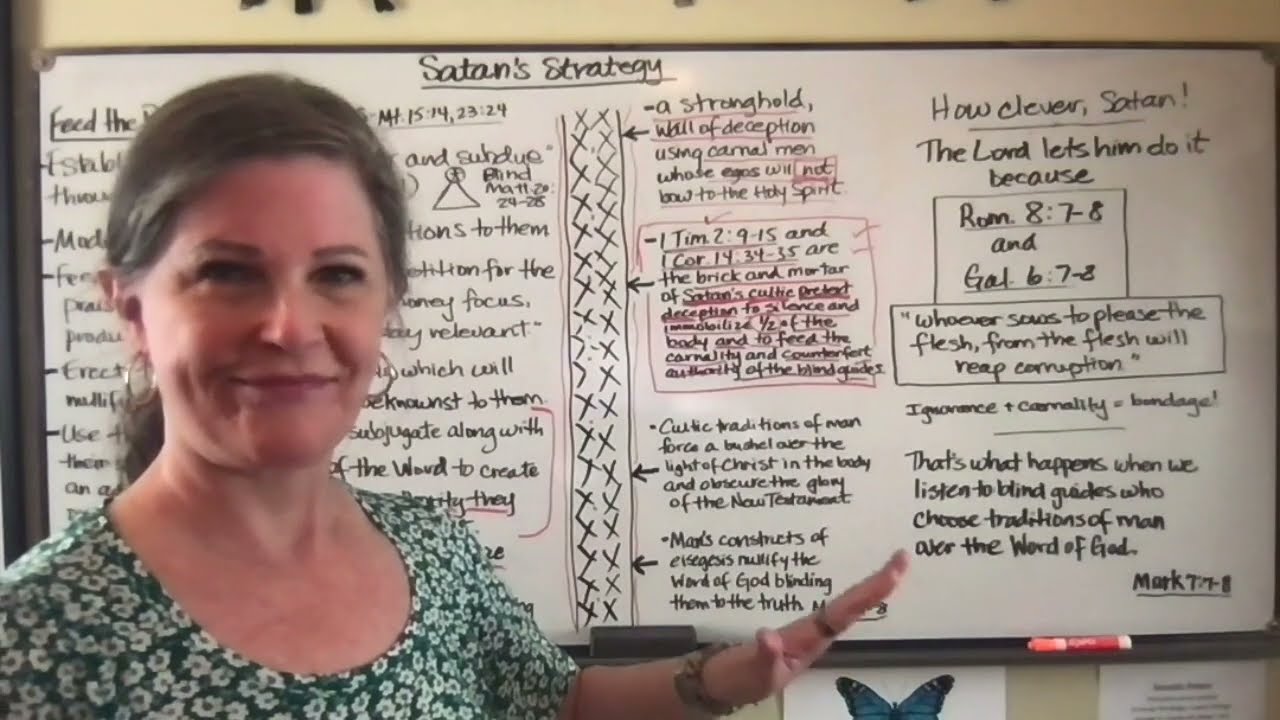 Satan's Strategy
Feed the
Mt. 15:14, 23:24
Establ
and subdue"
throu
Blind
Matt. 20:
24-28
Mad
tions to them
Fee
etition for the
prais
oney focus,
produ
ay relevant."
Erect
which will
nullif
beknownst to them.
Use
subjugate along with
their
of the Word to create
an a
they
- a stronghold,
wall of deception
using carnal men
whose egos will not
bow to the Holy Spirit.
- 1 Tim. 2:9-15 and
1 Cor. 14:34-35 are
the brick and mortar
of Satan's cultic pretext
deception to silence and
immobilize 1/2 of the
body and to feed the
carnality and counterfeit
authority of the blind guides.
• Cultic traditions of man
force a bushel over the
light of Christ in the body
and obscure the glory
of the New Testament
• Man's constructs of
eisegesis nullify the
Word of God blinding
them to the truth
How clever, Satan!
The Lord lets him do it
because
Rom. 8:7-8
and
Gal. 6:7-8
"Whoever sows to please the
flesh, from the flesh will
reap corruption"
Ignorance + carnality = bondage!
That's what happens when we
listen to blind guides who
choose traditions of man
over the Word of God.
Mark 7:7-8
EXPO